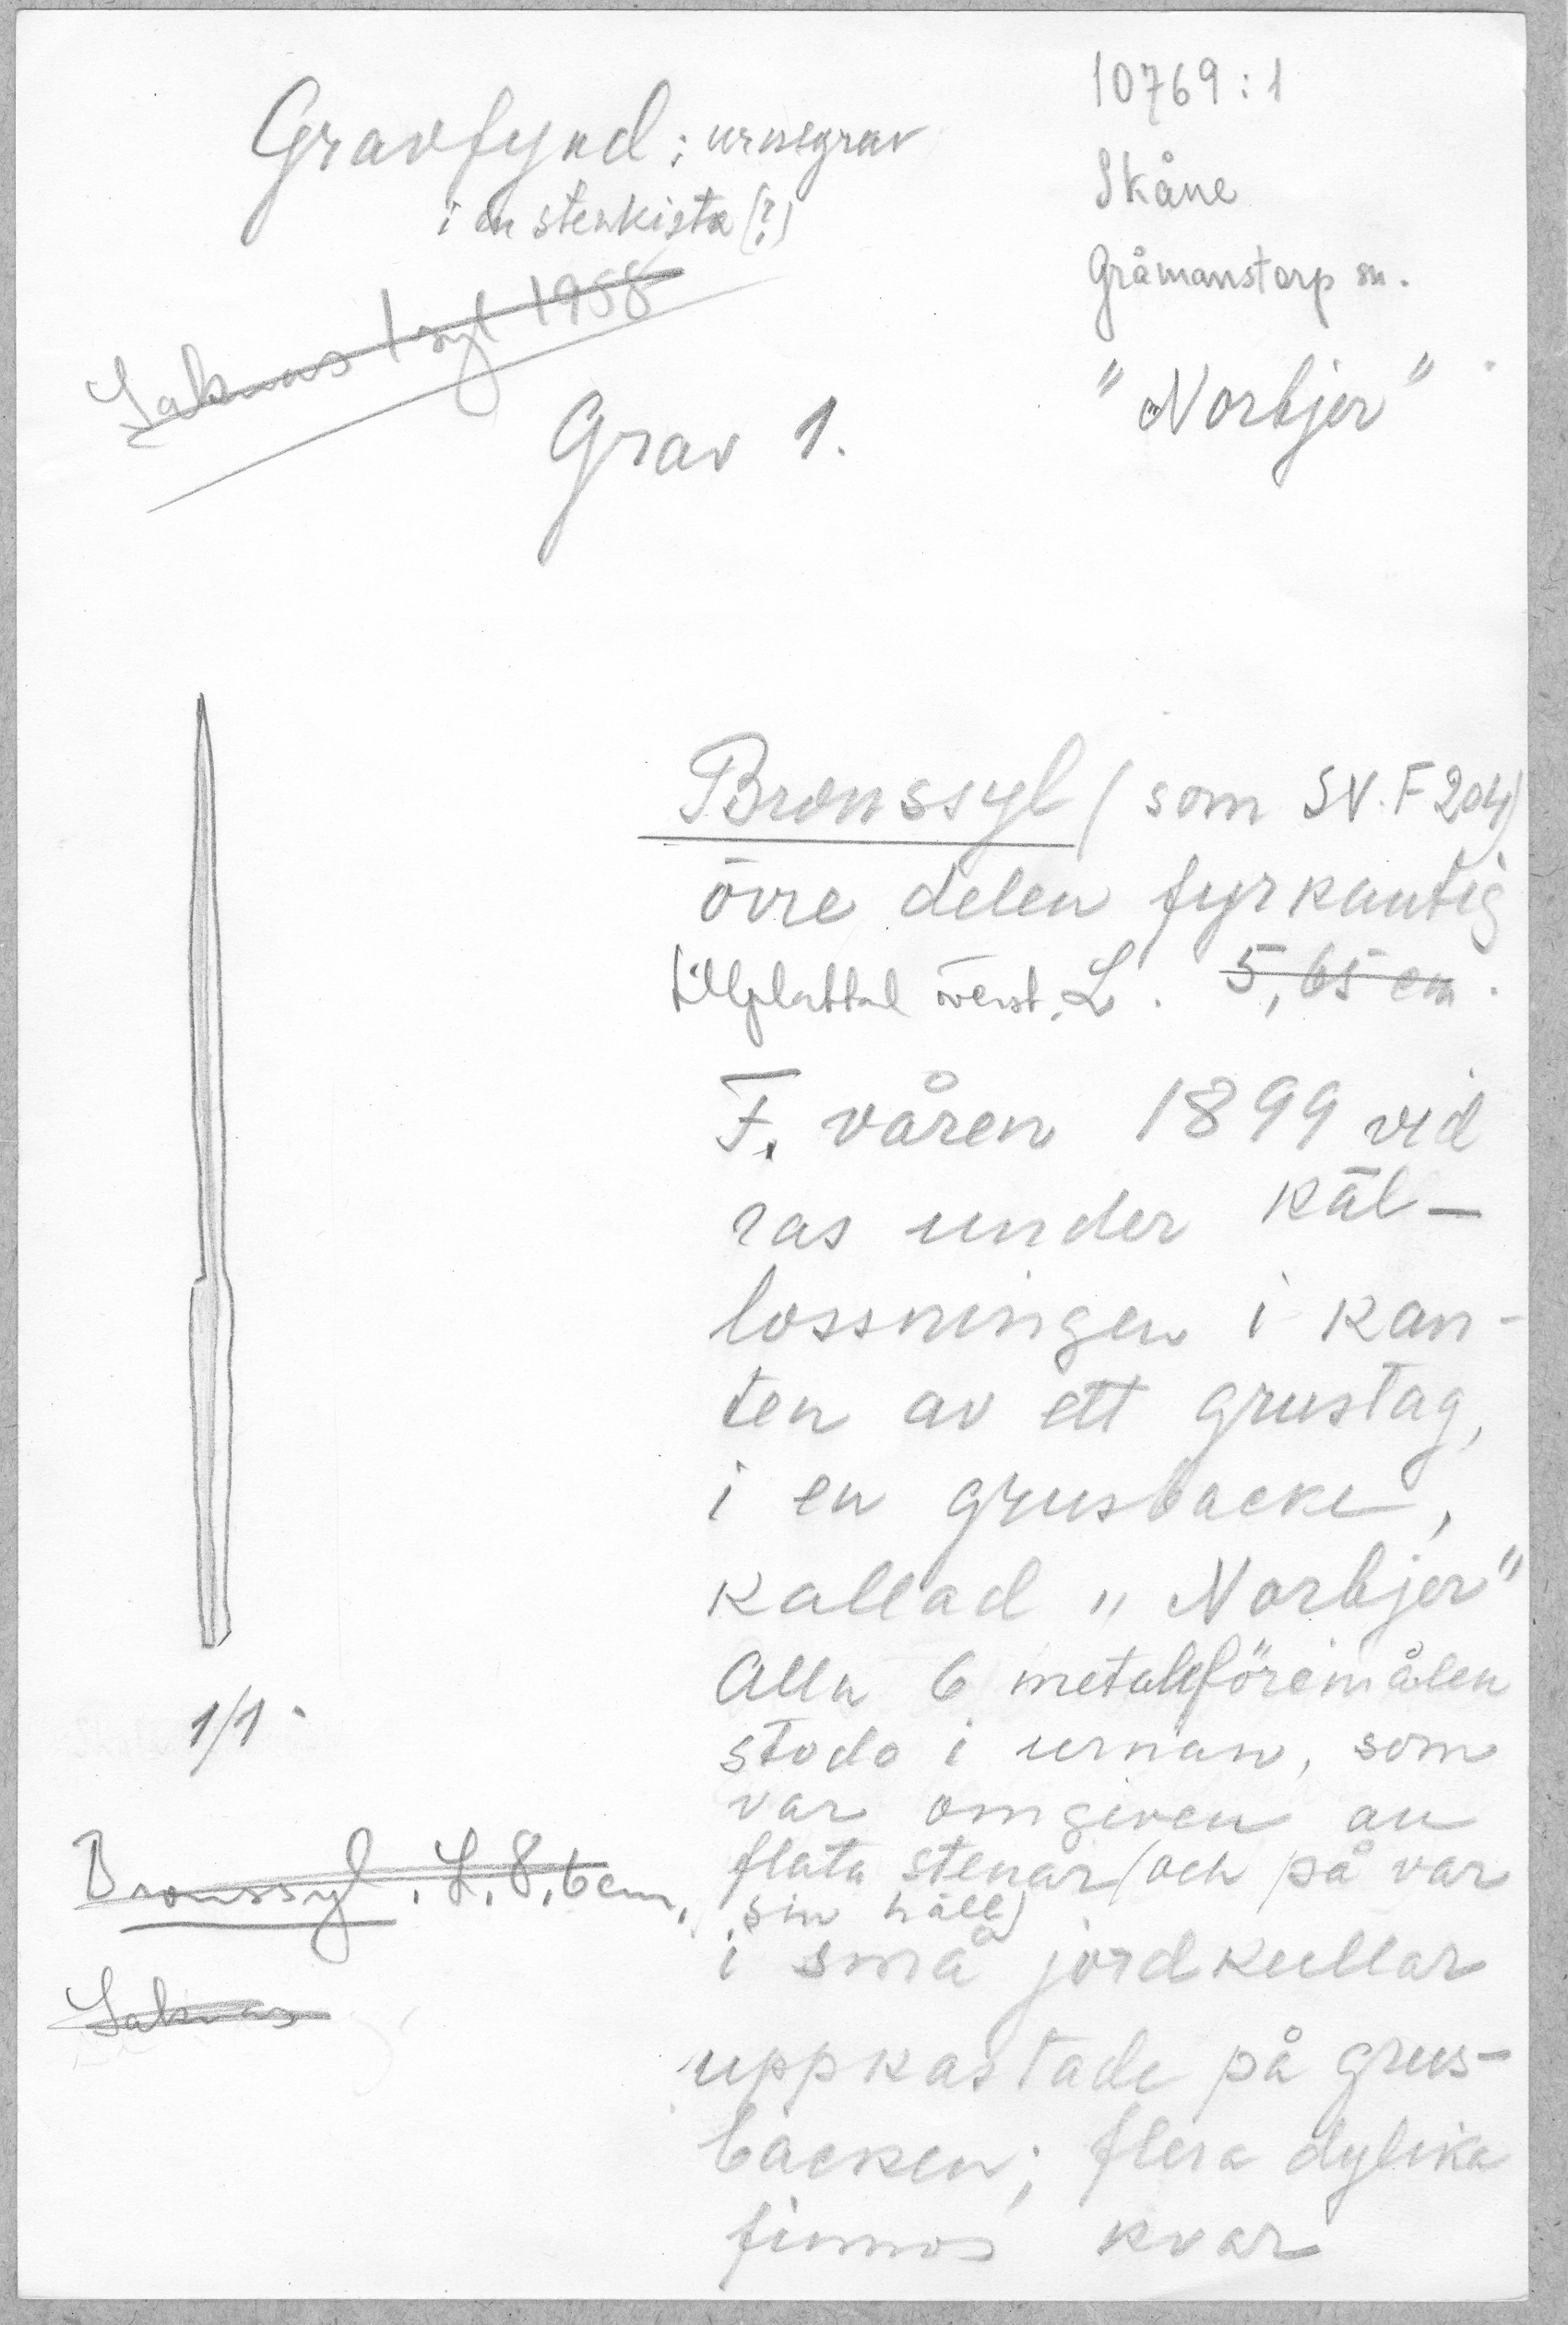 10769:1
Skåne
Gråmanstorp sn.
"Norbjer"
Gravfynd: urnegrav
i en stenkista (?)
Saknas 1 syl 1958
Grav 1.
Bronssyl (som SV. F 204)
övre delen fyrkantig
tillplattad överst. L. 5,65 cm.
F. våren 1899 vid
ras under käl-
lossningen i kan-
ten av ett grustag,
i en grusbacke,
kallad "Norbjer"
Alla 6 metallföremålen
stodo i urnan, som
var omgiven av
flata stenar (och på var
sin häll)
i små jordkullar
uppkastade på grus-
backen; flera dylika
finnas kvar
1/1.
Bronssyl. L. 8,6 cm.
Saknas